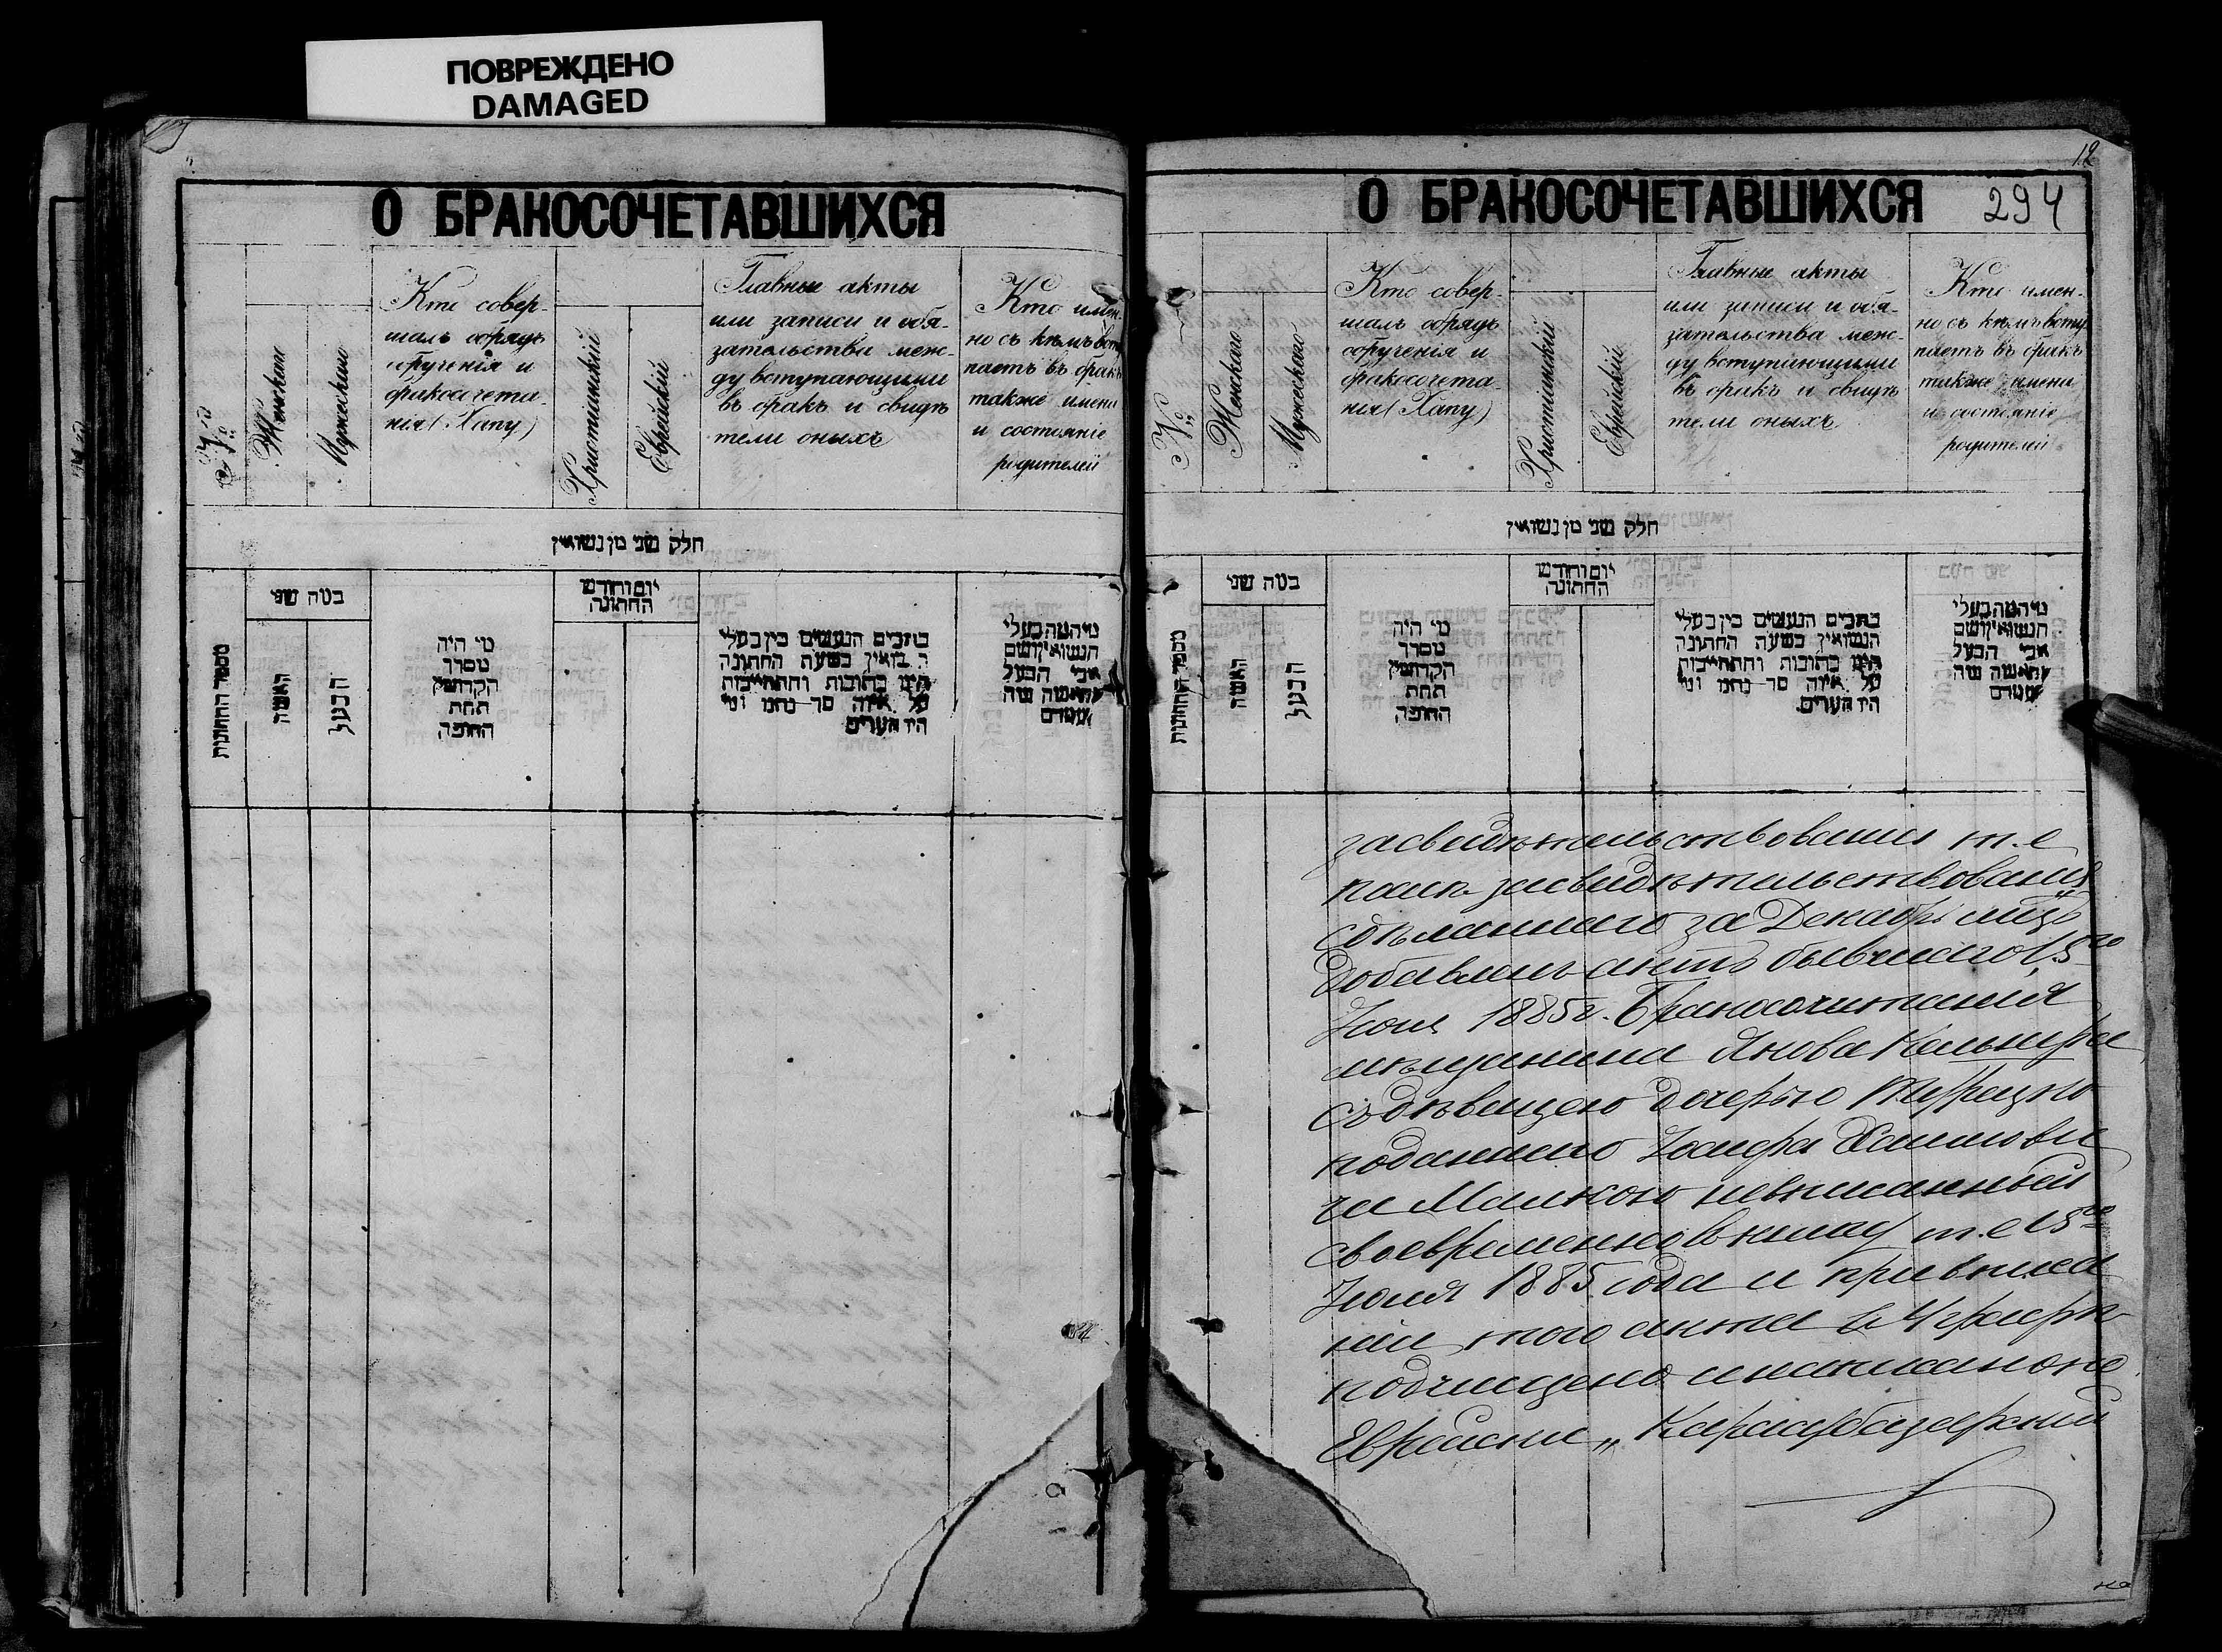 ПОВРЕЖДЕНО
DAMAGED
О БРАКОСОЧЕТАВШИХСЯ
№
Женскаго
Мужескаго
Кто совер-
шалъ обрядъ
обрученія и
бракосочета-
нія (Хапу)
Христіанскій
Еврейскій
Главные акты
или записи и обя-
зательства меж-
ду вступающими
въ бракъ и свидѣ
тели оныхъ
Кто имен-
но съ кѣмъ всту
паетъ въ бракъ
также имена
и состояніе
родителей
חלק שני מן נשואין
מספר החתונות
כמה שני
האשה
הבעל
מי היה
מסדר
הקדושין
תחת
החופה
יום וחודש
החתונה
כתבים הנעשים בין בעלי
הנשואין בשעת החתונה
היינו כתובות והתחייבות
על איזה סך נתנו ומי
היו העדים
מי המה בעלי
הנשואין ושם
אבי הבעל
והאשה ומה
מעמדם
12
О БРАКОСОЧЕТАВШИХСЯ 294
№
Женскаго
Мужескаго
Кто совер-
шалъ обрядъ
обрученія и
бракосочета-
нія (Хапу)
Христіанскій
Еврейскій
Главные акты
или записи и обя-
зательства меж-
ду вступающими
въ бракъ и свидѣ
тели оныхъ
Кто имен-
но съ кѣмъ всту
паетъ въ бракъ
также имена
и состояніе
родителей
חלק שני מן נשואין
מספר החתונות
כמה שני
האשה
הבעל
מי היה
מסדר
הקדושין
תחת
החופה
יום וחודש
החתונה
כתבים הנעשים בין בעלי
הנשואין בשעת החתונה
היינו כתובות והתחייבות
על איזה סך נתנו ומי
היו העדים
מי המה בעלי
הנשואין ושם
אבי הבעל
והאשה ומה
מעמדם
засвидѣтельствованія т.е
засвидѣтельствованія
сдѣланнаго за Декабрь мѣцъ
добавленъ актъ бывшаго 15го
1885г. бракосочитанія
мѣщанина Якова Кельнера
съ дѣвицею дочерью Турецко
подданнаго Іосифа Хаимови
ча невписанный
своевременно въ книгу т.е 15го
1885 года и при вписа
ніи того акта въ
подчищено и написано по
Еврейски „ Карасубазарскій